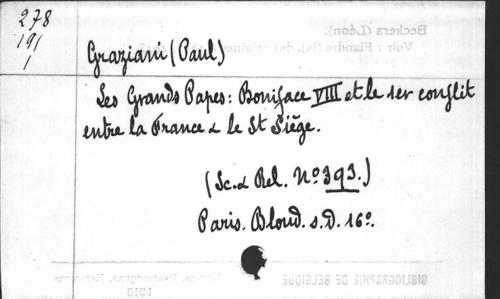 278
191
1
Graziani (Paul)
Les Grands Papes: Boniface VIII et le 1er conflit
entre la France & le St Siège.
(Sc. & Rel. No 393.)
Paris. Bloud. s.d. 16o.
Beckers (Léon).
Voir Flandre (la), des origines
BIBLIOGRAPHIE DE BELGIQUE
1913